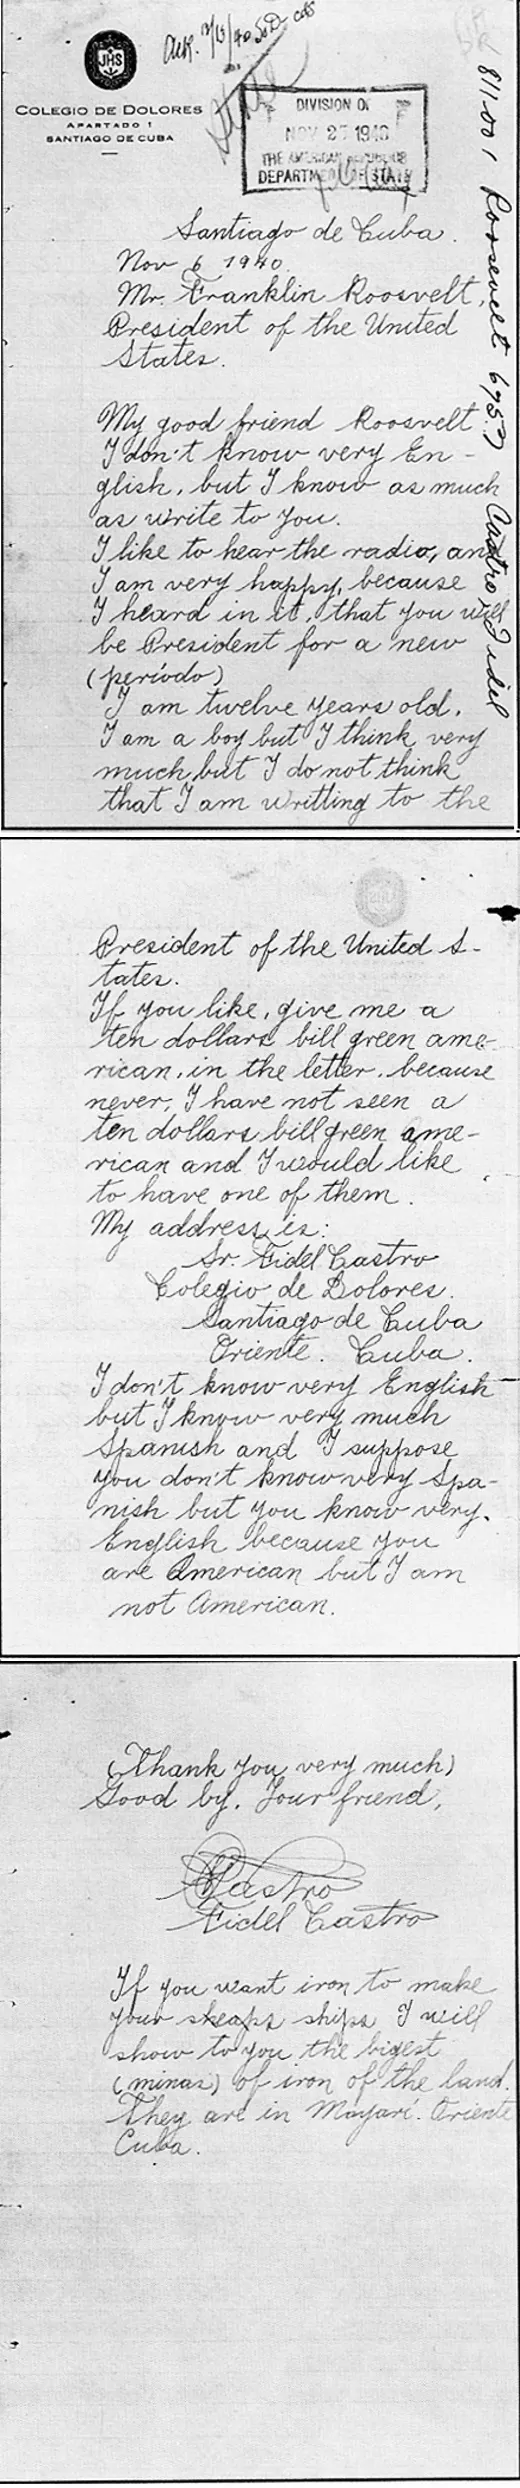 JHS
COLEGIO DE DOLORES
APARTADO 1
SANTIAGO DE CUBA
DIVISION OF
NOV 25 1940
THE AMERICAN REPUBLICS
DEPARTMENT OF STATE
811.001 Roosevelt
Castro, Fidel
Santiago de Cuba.
Nov 6 1940.
Mr. Franklin Roosvelt,
President of the United
States.
My good friend Roosvelt
I don't know very En-
glish, but I know as much
as write to you.
I like to hear the radio, and
I am very happy, because
I heard in it, that you will
be President for a new
(período)
I am twelve years old.
I am a boy but I think very
much but I do not think
that I am writting to the
President of the United S-
tates.
If you like, give me a
ten dollars bill green ame-
rican, in the letter, because
never, I have not seen a
ten dollars bill green ame-
rican and I would like
to have one of them.
My address is:
Sr. Fidel Castro
Colegio de Dolores.
Santiago de Cuba
Oriente. Cuba.
I don't know very English
but I know very much
Spanish and I suppose
you don't know very Spa-
nish but you know very
English because you
are American but I am
not American.
(Thank you very much)
Good by. Your friend,
Castro
Fidel Castro
If you want iron to make
your sheaps ships I will
show to you the bigest
(minas) of iron of the land.
They are in Mayarí. Oriente
Cuba.